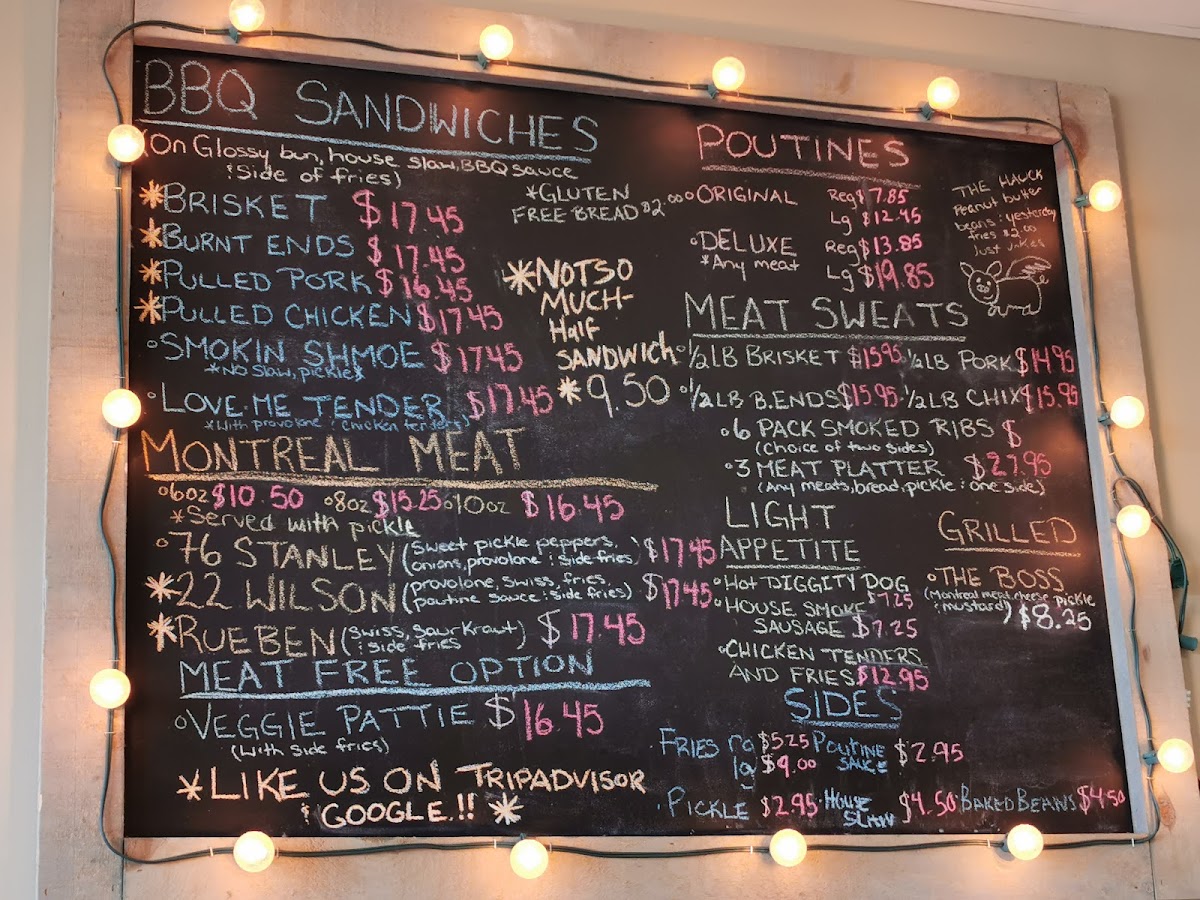 BBQ SANDWICHES
(On Glossy bun, house slaw, BBQ sauce
& Side of fries)
*GLUTEN
FREE BREAD $2.00
*BRISKET $17.45
*BURNT ENDS $17.45
*PULLED PORK $16.45
*PULLED CHICKEN $17.45
°SMOKIN SHMOE $17.45
*NO Slaw, pickles
°LOVE·ME TENDER $17.45
*With provolone & Chicken tenders
*NOT SO
MUCH-
Half
SANDWICH
*9.50
MONTREAL MEAT
°6oz $10.50 °8oz $15.25 °10oz $16.45
*Served with pickle
°76 STANLEY (Sweet pickle peppers, $17.45
onions, provolone & side fries)
*22 WILSON (provolone, swiss, fries, $17.45
poutine sauce & side fries)
*RUEBEN (Swiss, Saurkraut) $17.45
& Side fries
MEAT FREE OPTION
°VEGGIE PATTIE $16.45
(with side fries)
*LIKE US ON TRIPADVISOR
& GOOGLE.!! *
POUTINES
°ORIGINAL Reg $7.85
Lg $12.45
°DELUXE Reg $13.85
*Any meat Lg $19.85
THE HAWCK
Peanut butter
beans & yesterday
fries $2.00
Just Jokes
MEAT SWEATS
°1/2 LB BRISKET $15.95 ·1/2 LB PORK $14.95
°1/2 LB B.ENDS $15.95 ·1/2 LB CHIX $15.95
°6 PACK SMOKED RIBS $
(Choice of two sides)
°3 MEAT PLATTER $27.95
(Any meats, bread, pickle & one side)
LIGHT
APPETITE
°HOT DIGGITY DOG
$7.25
°HOUSE SMOKE
SAUSAGE $7.25
°CHICKEN TENDERS
AND FRIES $12.95
GRILLED
°THE BOSS
(Montreal meat, cheese, pickle
& mustard) $8.25
SIDES
FRIES rg $5.25 POUTINE
lg $9.00 SAUCE $2.95
·PICKLE $2.95 ·HOUSE
SLAW $4.50 BAKED BEANS $4.50